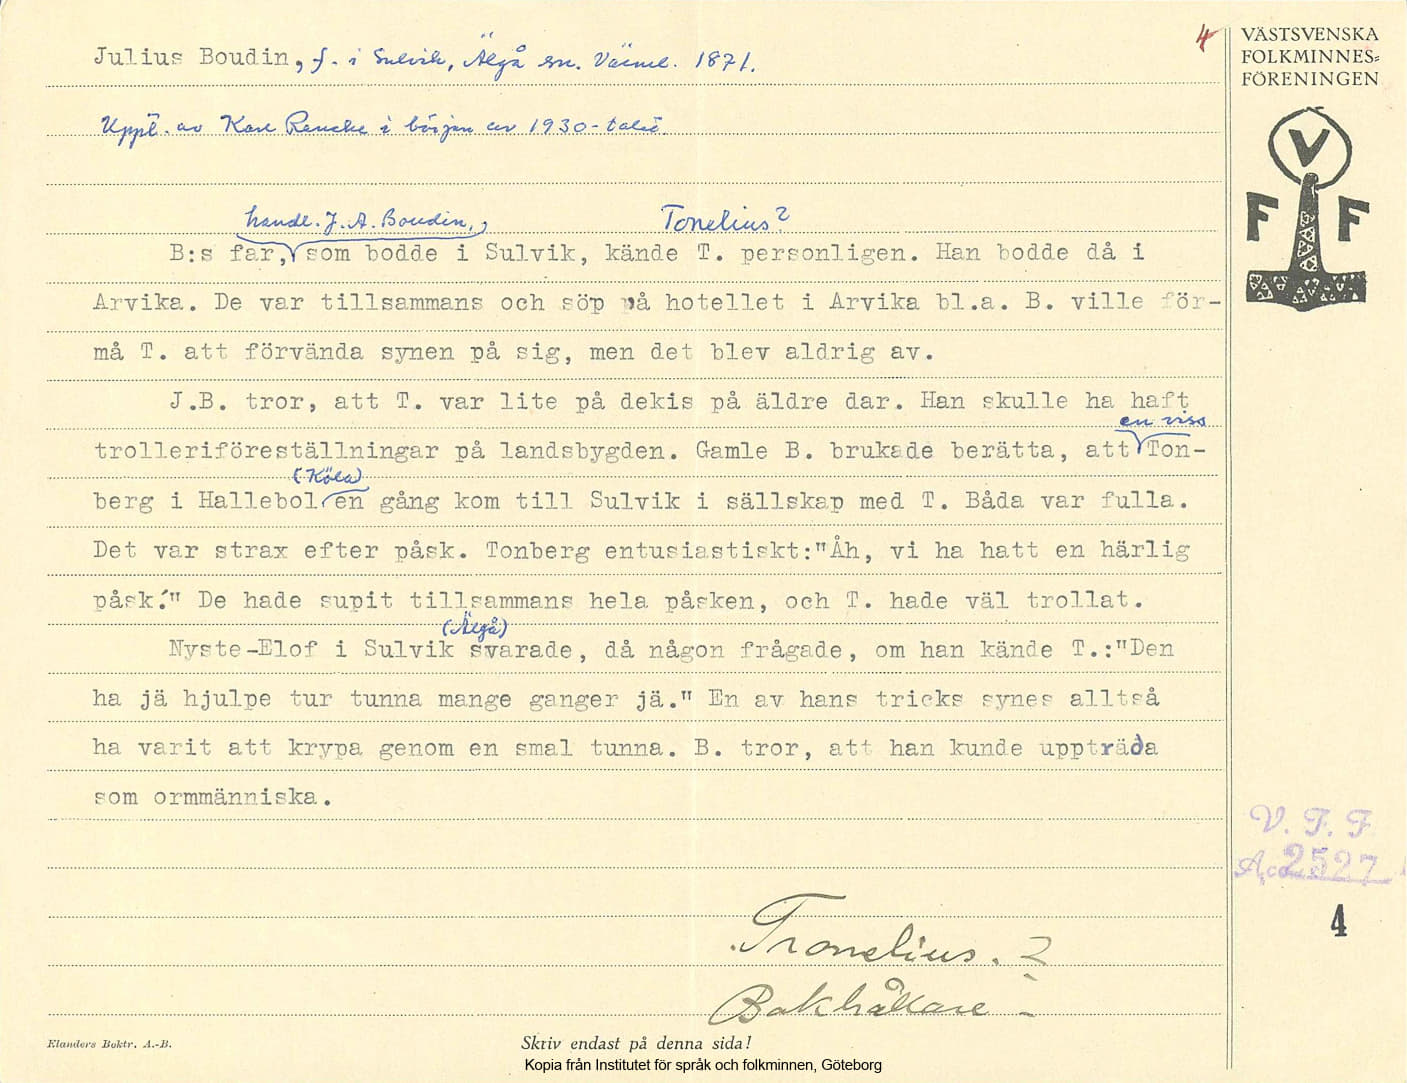 4
VÄSTSVENSKA
FOLKMINNES=
FÖRENINGEN
V
F F
Julius Boudin, f. i Sulvik, Älgå sn. Värml. 1871.
Uppt. av Karl Rencke i början av 1930-talet.
handl. J. A. Boudin, Tonelius?
B:s far, som bodde i Sulvik, kände T. personligen. Han bodde då i
Arvika. De var tillsammans och söp på hotellet i Arvika bl.a. B. ville för-
må T. att förvända synen på sig, men det blev aldrig av.
J.B. tror, att T. var lite på dekis på äldre dar. Han skulle ha haft
en viss
trolleriföreställningar på landsbygden. Gamle B. brukade berätta, att Ton-
(Köla)
berg i Hallebol en gång kom till Sulvik i sällskap med T. Båda var fulla.
Det var strax efter påsk. Tonberg entusiastiskt:"Åh, vi ha hatt en härlig
påsk!" De hade supit tillsammans hela påsken, och T. hade väl trollat.
(Älgå)
Nyste-Elof i Sulvik svarade, då någon frågade, om han kände T.:"Den
ha jä hjulpe tur tunna mange ganger jä." En av hans tricks synes alltså
ha varit att krypa genom en smal tunna. B. tror, att han kunde uppträda
som ormmänniska.
V. F. F.
Acc 2527
4
Tronelius. ?
Bakhållare -
Elanders Boktr. A.-B.
Skriv endast på denna sida!
Kopia från Institutet för språk och folkminnen, Göteborg